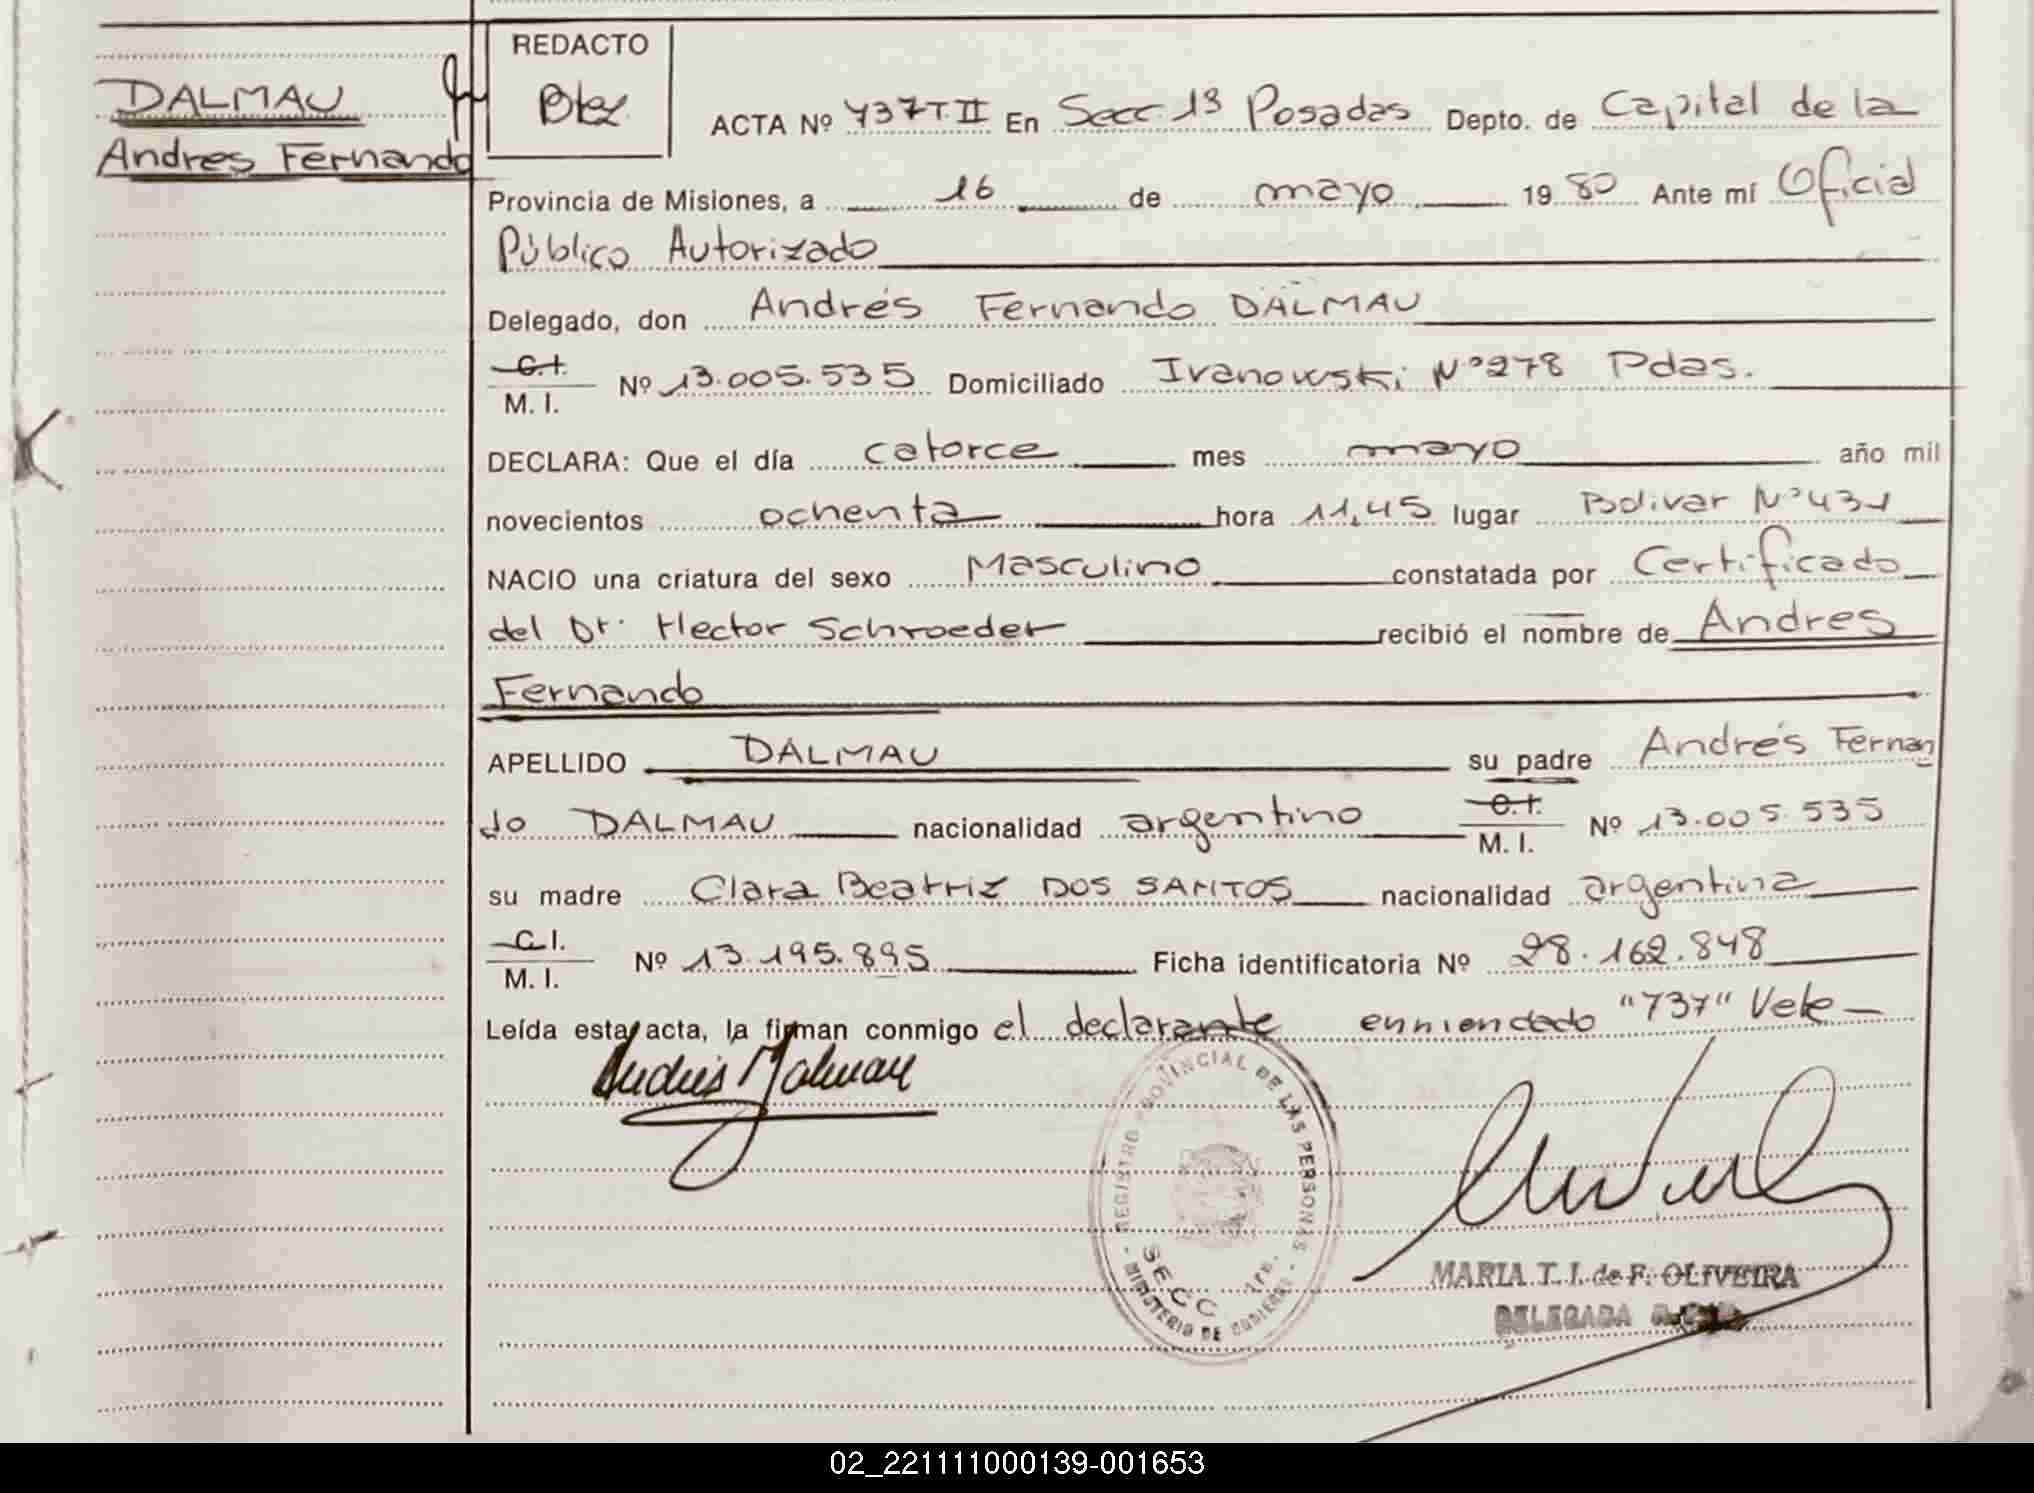 REDACTO
DALMAU
Andres Fernando
ACTA Nº 737 T. II En Secc. 1ª Posadas Depto. de Capital de la
Provincia de Misiones, a 16 de mayo 1980 Ante mí Oficial
Público Autorizado
Delegado, don Andrés Fernando DALMAU
C.I.
M. I. Nº 13.005.535 Domiciliado Ivanowski Nº 278 Pdas.
DECLARA: Que el día catorce mes mayo año mil
novecientos ochenta hora 11,45 lugar Bolivar Nº 431
NACIO una criatura del sexo Masculino constatada por Certificado
del Dr. Hector Schroeder recibió el nombre de Andres
Fernando
APELLIDO DALMAU su padre Andrés Fernan
do DALMAU nacionalidad argentino C.I. M. I. Nº 13.005.535
su madre Clara Beatriz DOS SANTOS nacionalidad argentina
C.I.
M. I. Nº 13.195.895 Ficha identificatoria Nº 28.162.848
Leída esta acta, la firman conmigo el declarante enmiendado "737" Vale
Andrés Dalmau
REGISTRO PROVINCIAL DE LAS PERSONAS
SECC
MINISTERIO DE GOBIERNO
MARIA T. I. de F. OLIVEIRA
DELEGADA
02_221111000139-001653